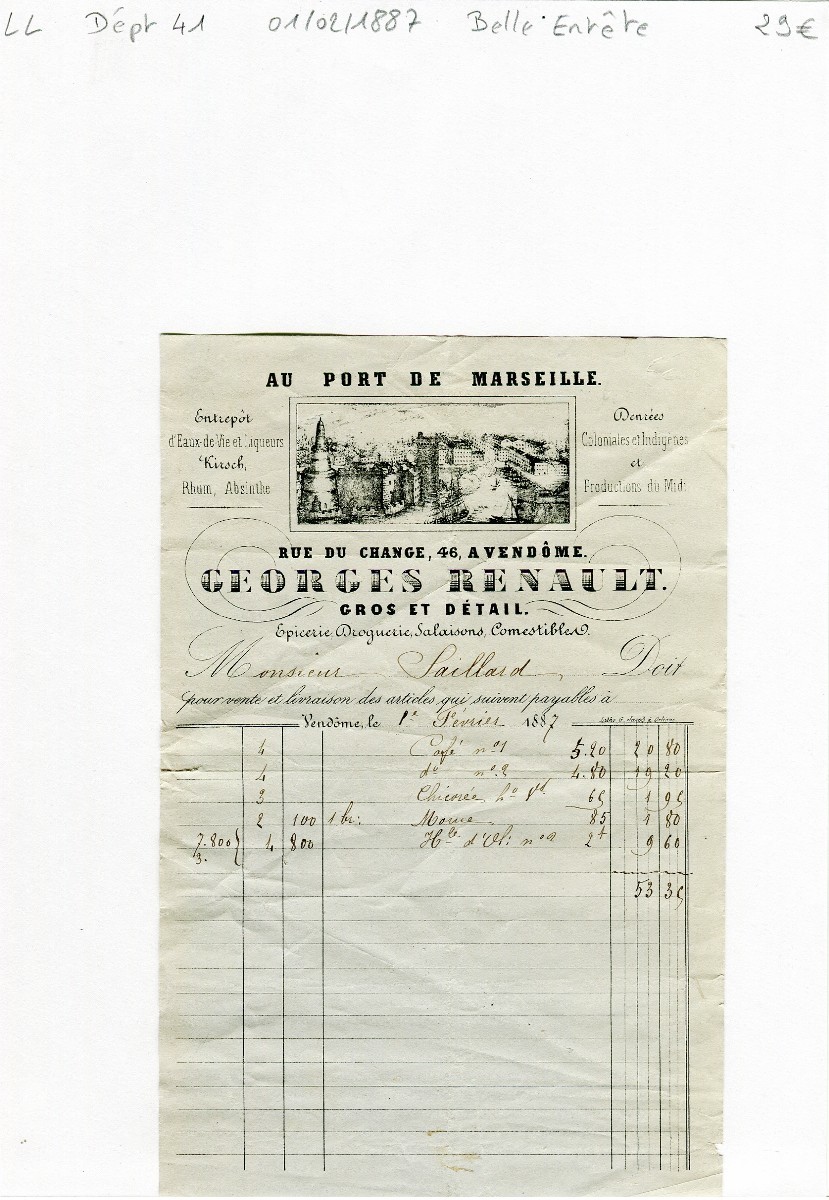 LL Dépt 41 01/02/1887 Belle Entête 29€
AU PORT DE MARSEILLE.
Entrepôt
d'Eaux-de-Vie et Liqueurs
Kirsch,
Rhum, Absinthe
Denrées
Coloniales et Indigènes
et
Productions du Midi
RUE DU CHANGE, 46, A VENDÔME.
GEORGES RENAULT.
GROS ET DÉTAIL.
Epicerie, Droguerie, Salaisons, Comestibles.
Monsieur Saillard Doit
pour vente et livraison des articles qui suivent payables à
Vendôme, le 1er Février 1887
4 Café n°1 5.20 20 80
4 do n°2 4.80 19 20
3 Chicorée 65 1 95
2 100 1 br: Morue 85 1 80
7.800 } 4 800 Hle d'Oli: n°2 2+ 9 60
3.
53 35